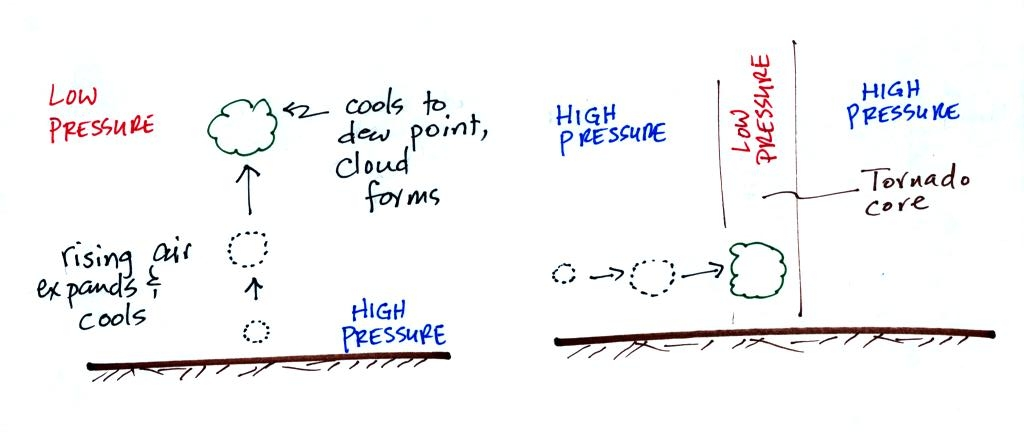 LOW
PRESSURE
cools to
dew point,
cloud
forms
rising air
expands &
cools
HIGH
PRESSURE
HIGH
PRESSURE
LOW
PRESSURE
HIGH
PRESSURE
Tornado
core